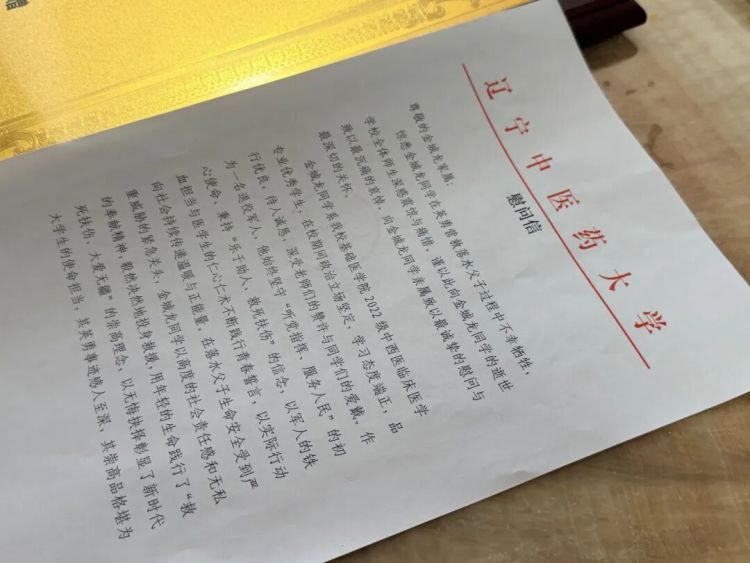 辽宁中医药大学
慰问信
尊敬的金城龙家属：
惊悉金城龙同学在英勇营救落水父子过程中不幸牺牲，
学校全体师生深感震惊与痛惜，谨以此向金城龙同学的逝世
致以最沉痛的哀悼，向金城龙同学亲属致以最诚挚的慰问与
最深切的关怀。
金城龙同学系我校基础医学院2022级中西医临床医学
专业优秀学生，在校期间政治立场坚定，学习态度端正，品
行优良，待人诚恳，深受老师们的赞许与同学们的爱戴。作
为一名退役军人，他始终坚守“听党指挥、服务人民”的初
心使命，秉持“乐于助人、救死扶伤”的信念，以军人的铁
血担当与医学生的仁心仁术不断践行青春誓言，以实际行动
向社会持续传递温暖与正能量。在落水父子生命安全受到严
重威胁的紧急关头，金城龙同学以高度的社会责任感和无私
的奉献精神，毅然决然地投身救援，用年轻的生命践行了“救
死扶伤、大爱无疆”的崇高理念，以无悔抉择彰显了新时代
大学生的使命担当，其英勇事迹感人至深，其崇高品格堪为